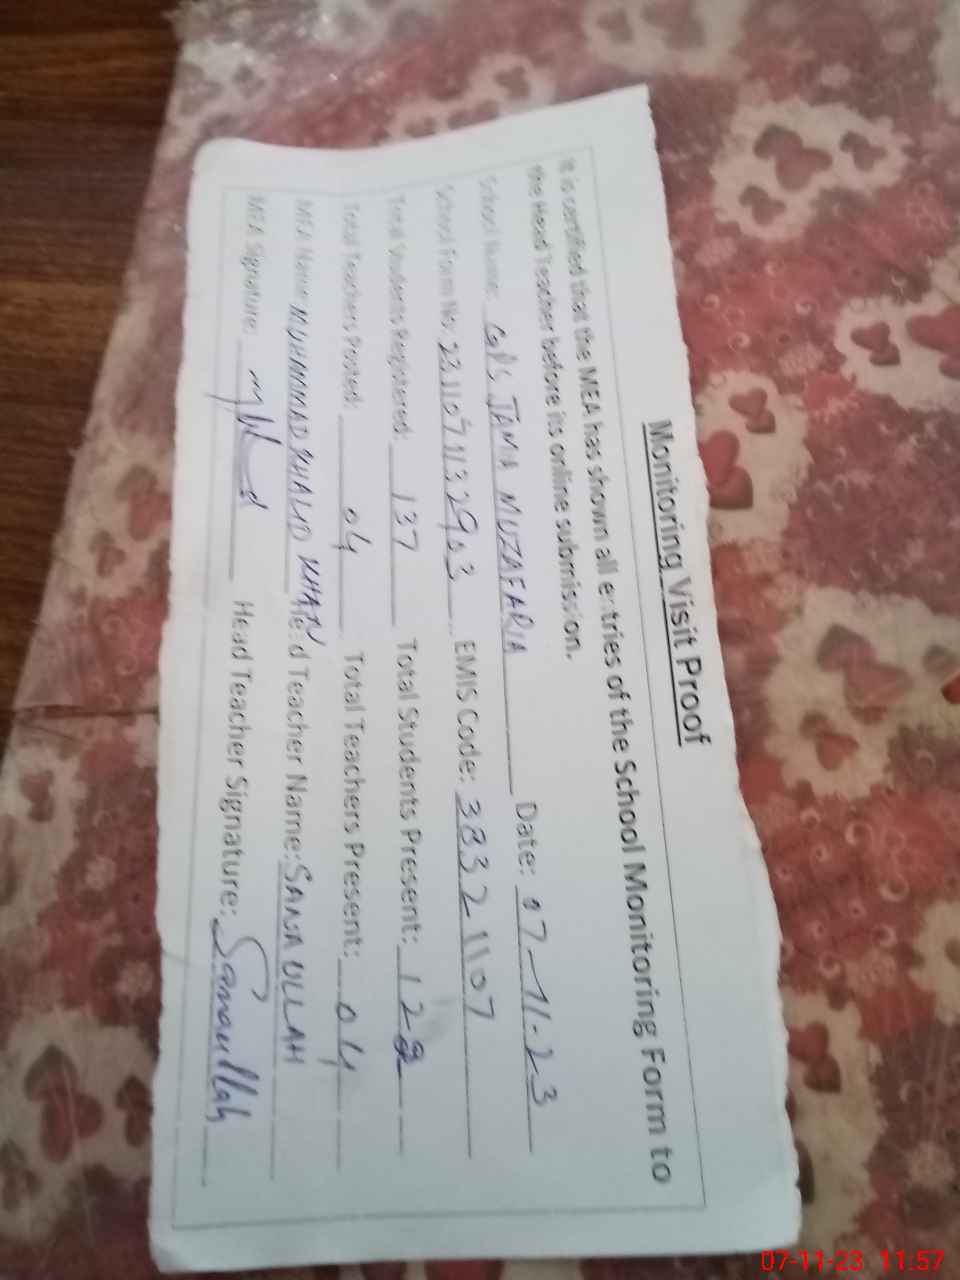 Monitoring Visit Proof
It is certified that the MEA has shown all entries of the School Monitoring Form to
the Head Teacher before its online submission.
School Name: GPS JAMIA MUZAFARIA Date: 07-11-23
School Form No: 2311071132903 EMIS Code: 38321107
Total Students Registered: 137 Total Students Present: 128
Total Teachers Posted: 04 Total Teachers Present: 04
MEA Name: MUHAMMAD KHALID KHAN Head Teacher Name: SANAULLAH
MEA Signature: Head Teacher Signature: Sanaullah
07-11-23 11:57